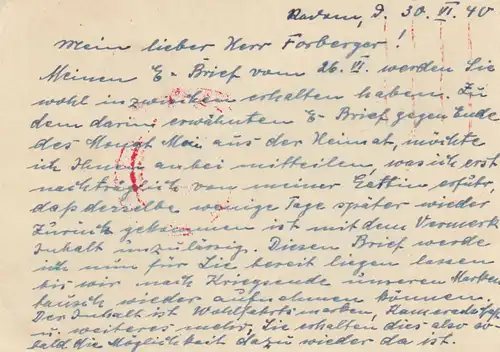 Radom, d. 30. VI. 40
Mein lieber Herr Forberger!
Meinen E-Brief vom 26. VI. werden Sie
wohl inzwischen erhalten haben. Zu
dem darin erwähnten E-Brief gegen Ende
des Monat Mai aus der Heimat, möchte
ich Ihnen anbei mitteilen, was ich erst
nachträglich von meiner Gattin erfuhr,
daß derselbe wenige Tage später wieder
Zurück gekommen ist mit dem Vermerk
Inhalt unzulässig. Diesen Brief werde
ich nun für Sie bereit liegen lassen
bis wir nach Kriegsende unseren Marken
tausch wieder aufnehmen können.
Der Inhalt ist Wohlfahrtsmarken, Kameradschaft
u. weiteres mehr, Sie erhalten dies also so
bald die Möglichkeit dazu wieder da ist.